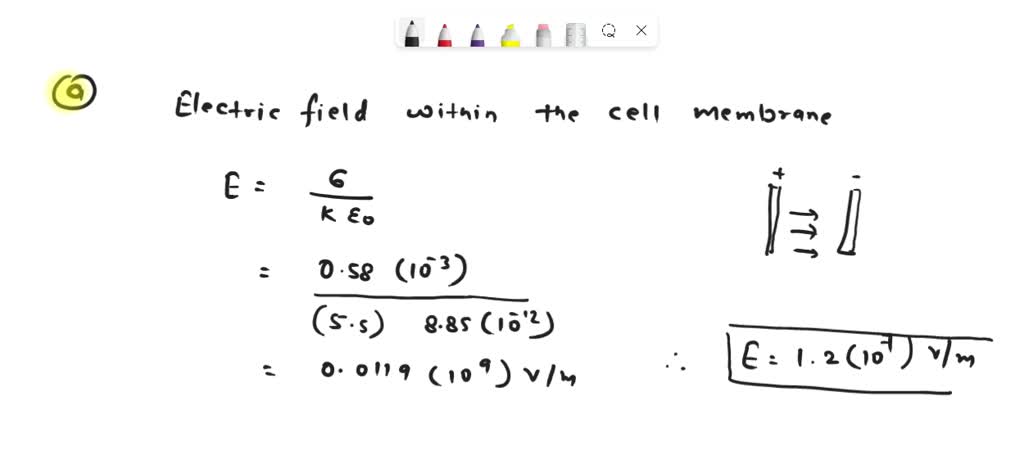 a
Electric field within the cell membrane
+ -
E = σ
K ε0
= 0.58 (10^-3)
(5.5) 8.85 (10^-12)
= 0.0119 (10^9) V/m
∴ E = 1.2 (10^7) V/m